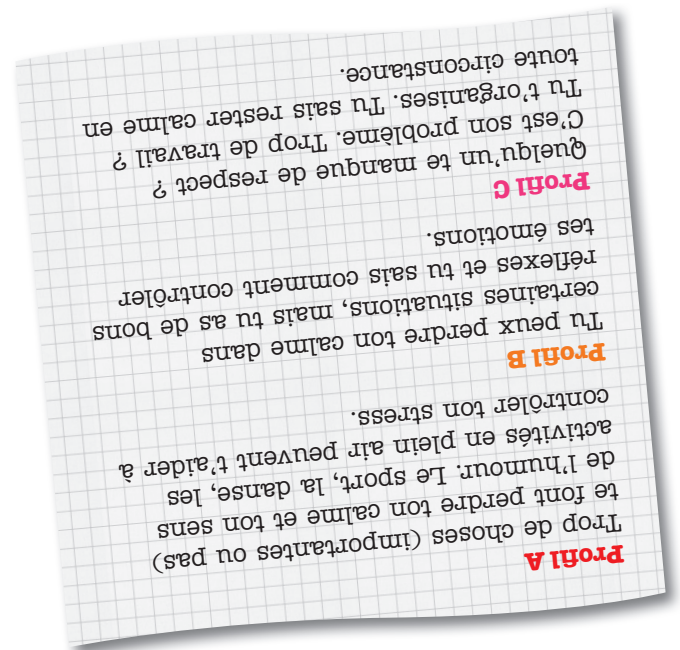 Profil A
Trop de choses (importantes ou pas)
te font perdre ton calme et ton sens
de l’humour. Le sport, la danse, les
activités en plein air peuvent t’aider à
contrôler ton stress.
Profil B
Tu peux perdre ton calme dans
certaines situations, mais tu as de bons
réflexes et tu sais comment contrôler
tes émotions.
Profil C
Quelqu’un te manque de respect ?
C’est son problème. Trop de travail ?
Tu t’organises. Tu sais rester calme en
toute circonstance.